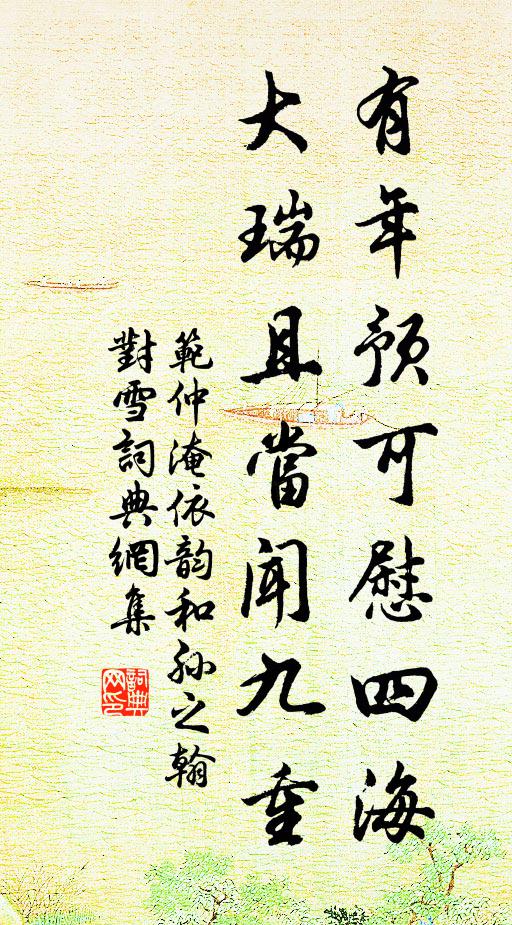 有年预可慰四海
大瑞且當闻九重
範仲淹依韵和孙之翰
對雪詞典網集
詞典网印